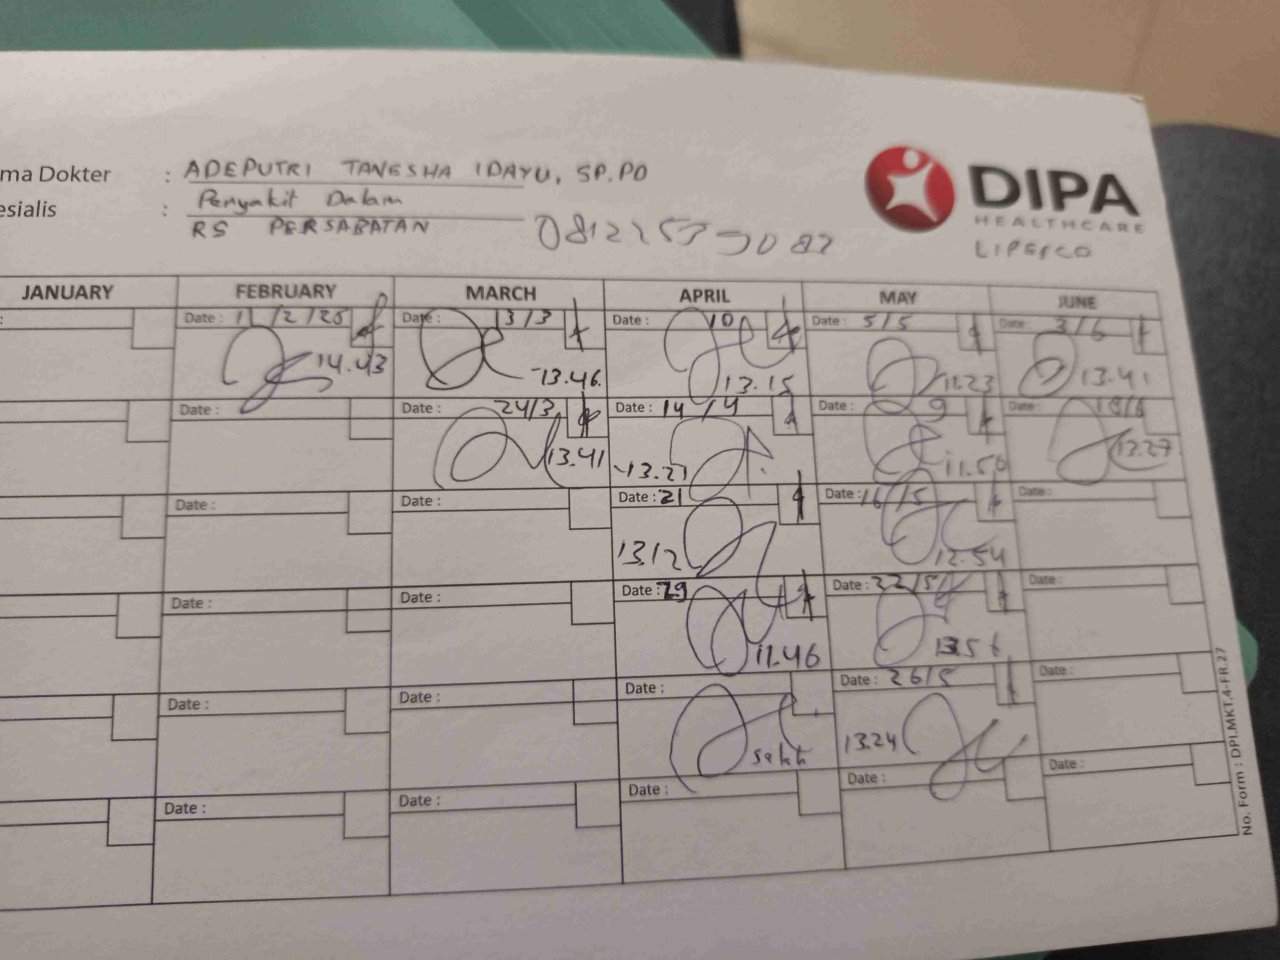 ma Dokter : ADEPUTRI TANESHA IDAYU, SP.PD
esialis : Penyakit Dalam
RS PERSABATAN
DIPA
HEALTHCARE
JANUARY FEBRUARY MARCH APRIL MAY JUNE
: Date : 11/2/25 Date : 13/3 Date : 10 Date : 5/5 Date : 3/6
14.43 13.46 13.15 11.23 13.41
Date : 24/3 Date : 14/4 Date : 9 Date :
13.41 13.21 11.50 13.27
Date : Date : Date : 21 Date : 16/5 Date :
13.12 12.54
Date : Date : Date : 29 Date : 22/5 Date :
11.46 13.56
Date : Date : Date : Date : 26/5 Date :
13.24
Date : Date : Date : Date : Date :
No. Form : DPI.MKT.4-FR.27